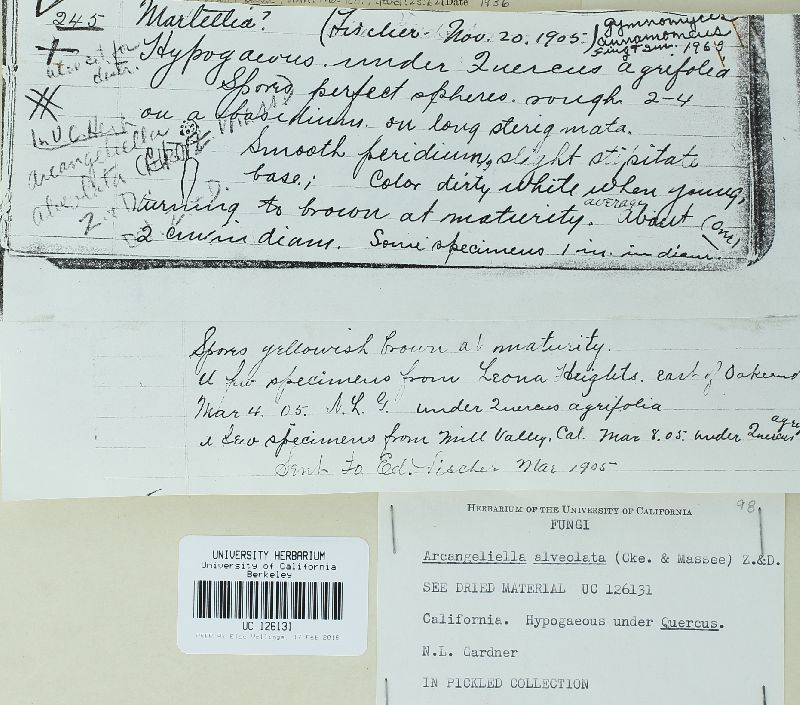 1936
245 Martellia? (Fischer. Nov. 20. 1905.)
Gymnomyces
cinnamomeus
Sing & Sm. 1960
Hypogaeous. under Quercus agrifolia
Spores perfect spheres. rough. 2-4
on a basidium. on long sterigmata.
Smooth peridium, slight stipitate
base; Color dirty white when young,
turning to brown at maturity. average About (one)
2 cm in diam. Some specimens 1 in. in diam.
In UC Herb
arcangeliella
alveolata
Spores yellowish brown at maturity.
A few specimens from Leona Heights. east of Oakland
Mar 4. 05. N.L.G. under Quercus agrifolia
A few specimens from Mill Valley, Cal. Mar 8. 05. under Quercus
Sent to Ed. Fischer Mar 1905
98
HERBARIUM OF THE UNIVERSITY OF CALIFORNIA
FUNGI
Arcangeliella alveolata (Cke. & Massee) Z.&D.
SEE DRIED MATERIAL UC 126131
California. Hypogaeous under Quercus.
N.L. Gardner
IN PICKLED COLLECTION
UNIVERSITY HERBARIUM
University of California
Berkeley
UC 126131